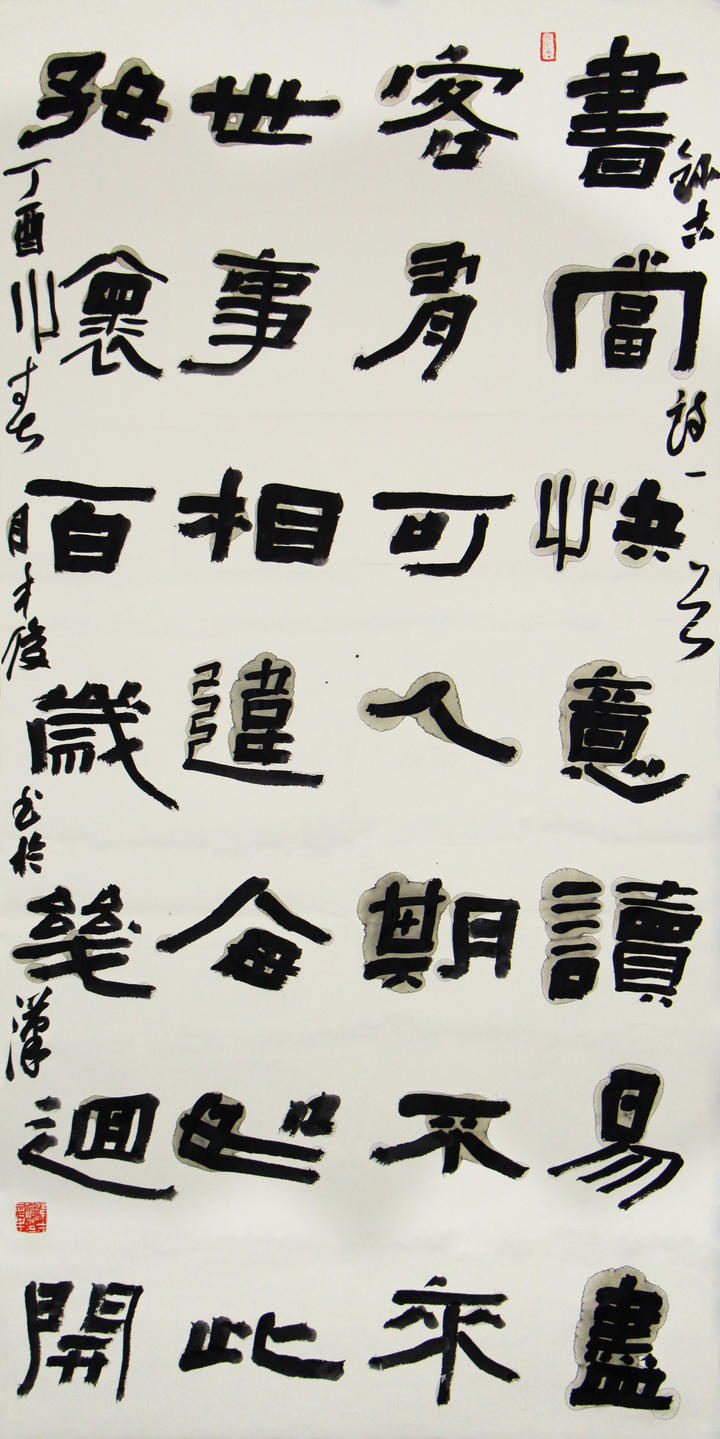 錄古詩一首
書當快意讀易盡
客有可人期不來
世事相違每如此
好懷百歲幾迴開
丁酉春月才俊书於漢